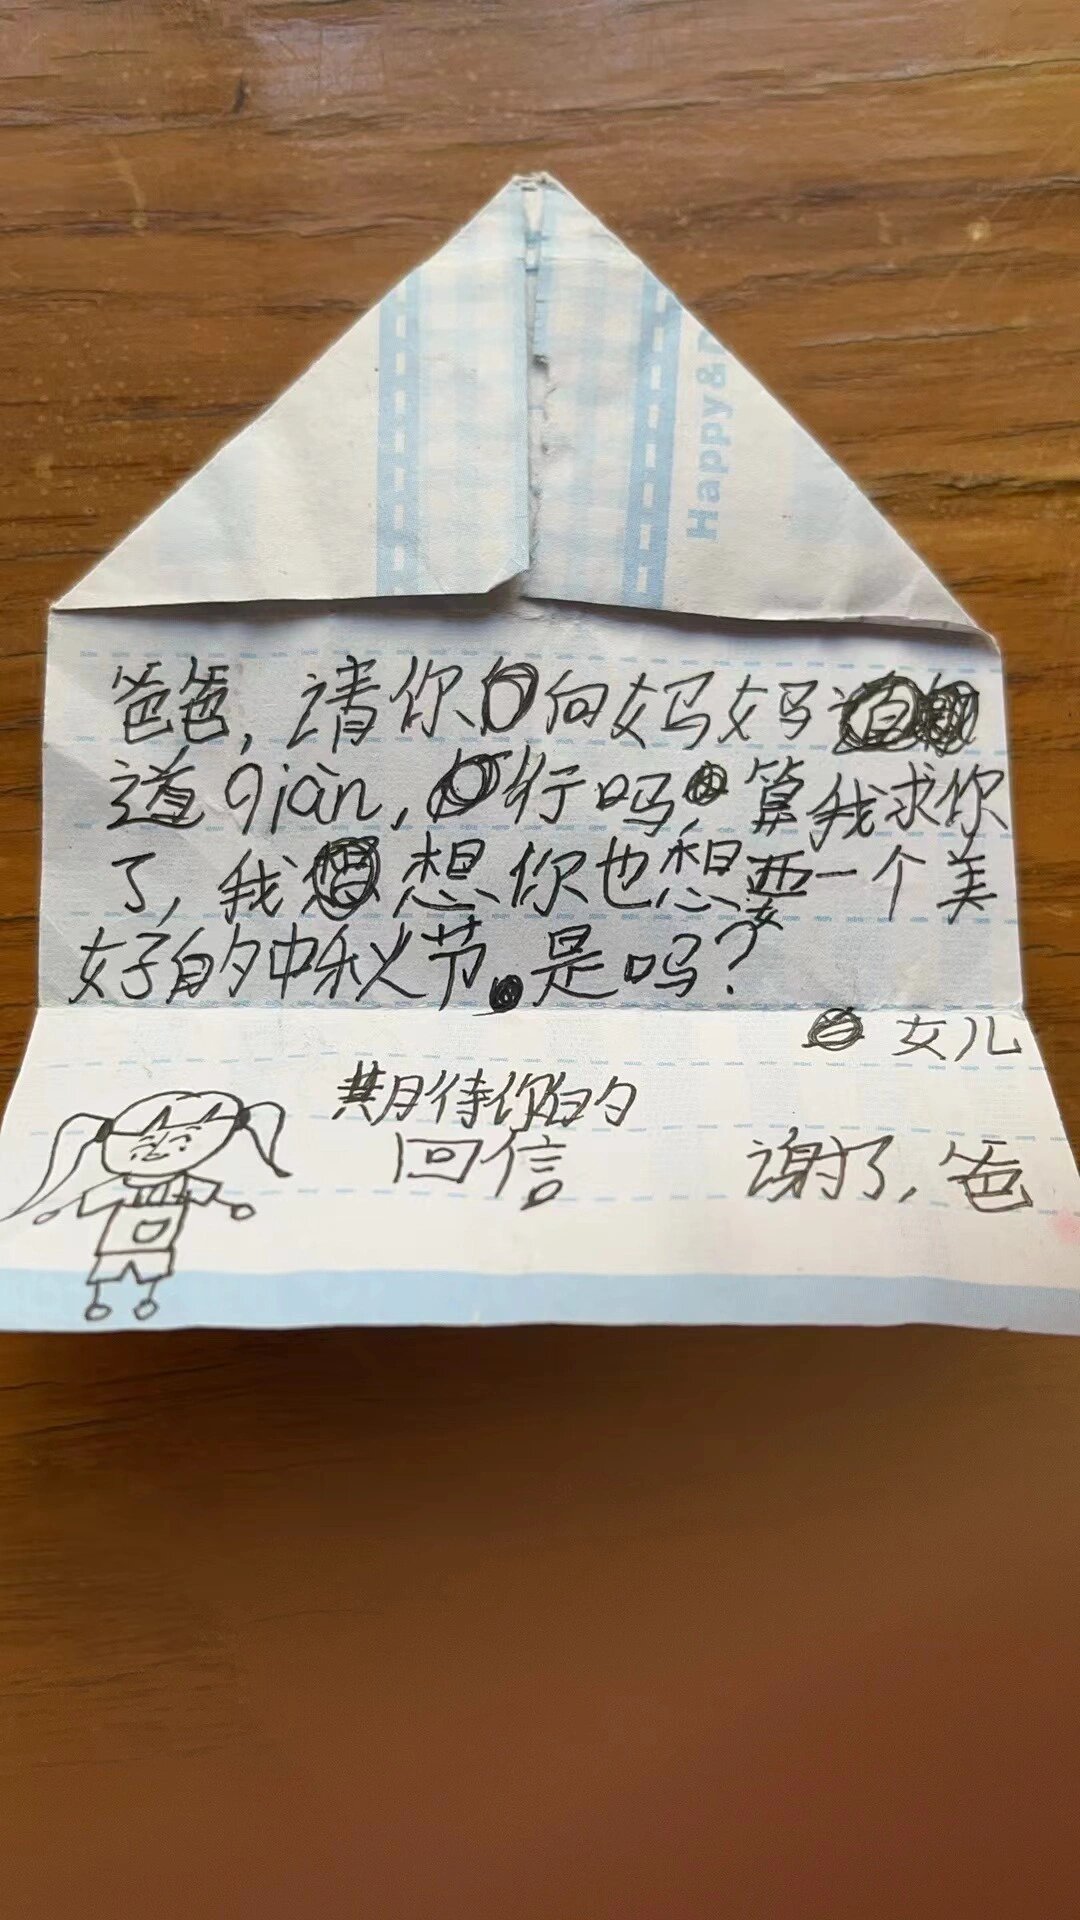 Happy&
爸爸,请你向妈妈
道qiàn,行吗,算我求你
了,我想你也想要一个美
好的中秋节。是吗?
女儿
期待你的
回信。
谢了,爸